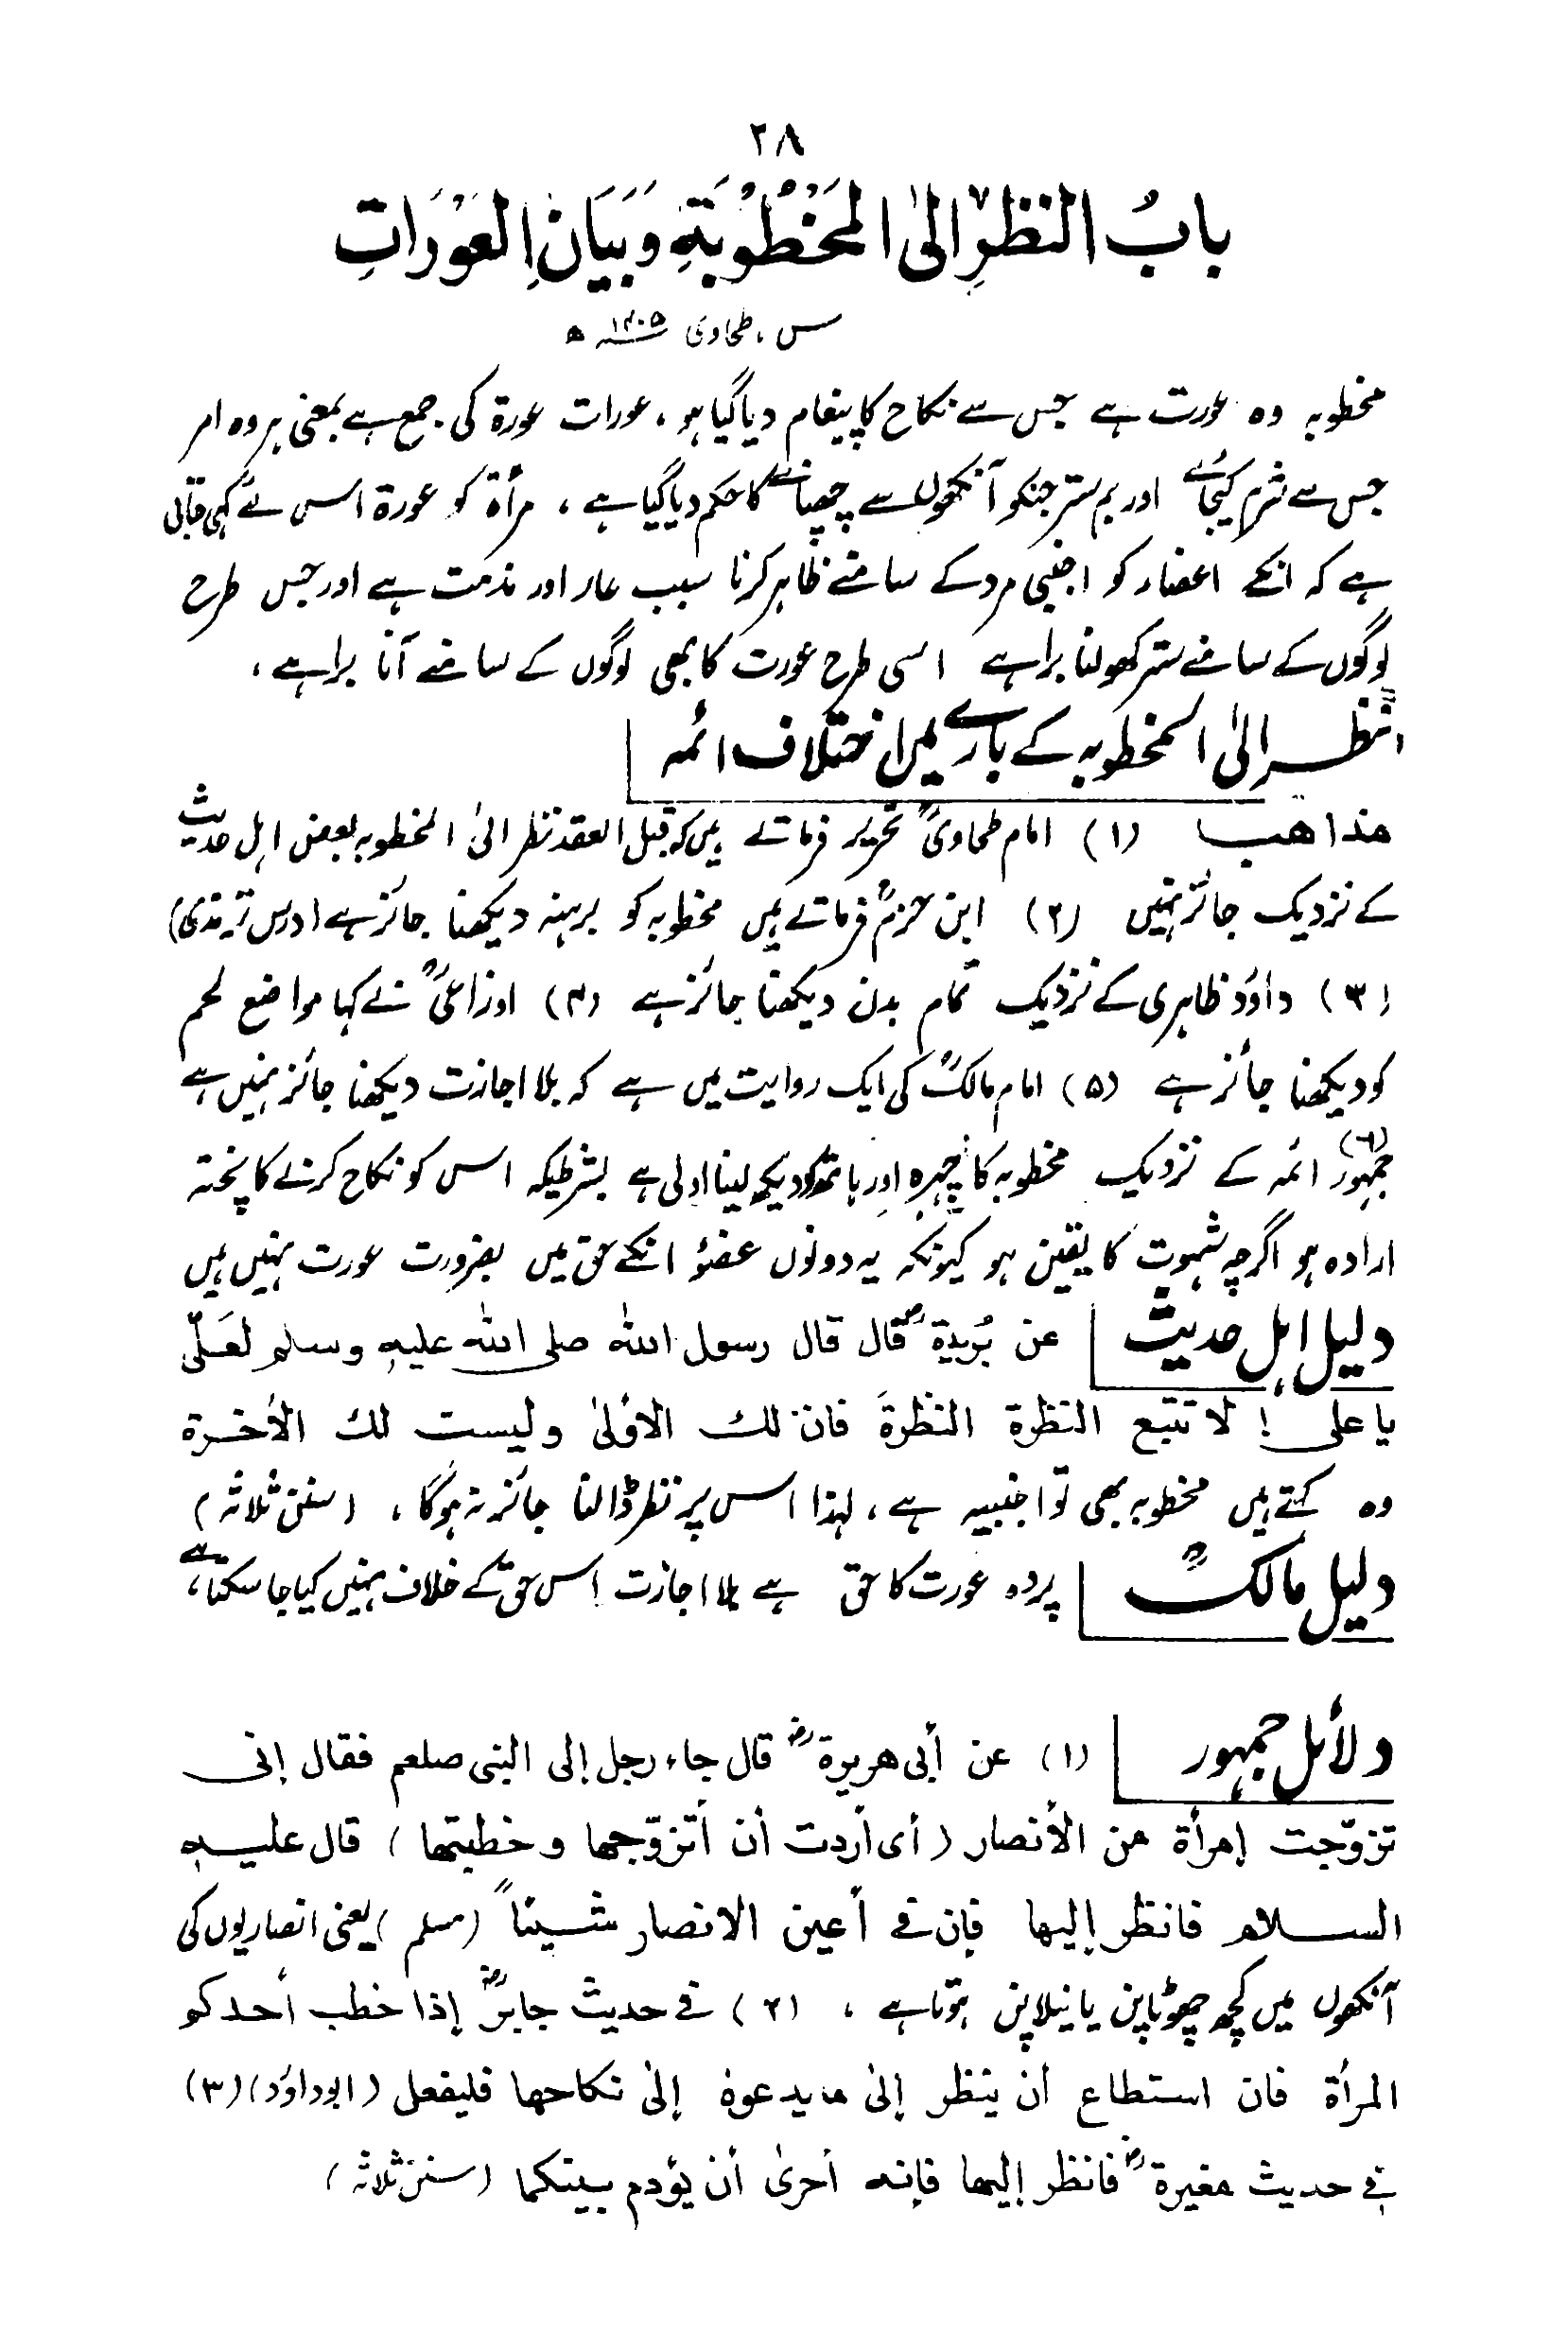 ۲۸
بابُ النظرِ الیٰ المَخْطُوْبَةِ وَبَيَانِ العَوْرَاتِ
س، طحاوی ۱۴۰۵ھ
مخطوبہ وہ عورت ہے جس سے نکاح کا پیغام دیا گیا ہو، عورات عورۃ کی جمع ہے بمعنی ہر وہ امر
جس سے شرم کیجائے اور بم ستر جنکو آنکھوں سے چھپانے کا حکم دیا گیا ہے، مرأۃ کو عورۃ اس لئے کہی جاتی
ہے کہ انکے اعضاء کو اجنبی مرد کے سامنے ظاہر کرنا سبب عار اور مذمت ہے اور جس طرح
لوگوں کے سامنے ستر کھولنا برا ہے اسی طرح عورت کا بھی لوگوں کے سامنے آنا برا ہے،
نظر الیٰ المخطوبہ کے بارے میں اختلاف ائمہ
مذاھب (۱) امام طحاویؒ تحریر فرماتے ہیں کہ قبل العقد نظر الیٰ المخطوبہ بعض اہل حدیث
کے نزدیک جائز نہیں (۲) ابن حزمؒ فرماتے ہیں مخطوبہ کو برہنہ دیکھنا جائز ہے (درس ترمذی)
(۳) داؤد ظاہری کے نزدیک تمام بدن دیکھنا جائز ہے (۴) اوزاعیؒ نے کہا مواضع لحم
کو دیکھنا جائز ہے (۵) امام مالکؒ کی ایک روایت میں ہے کہ بلا اجازت دیکھنا جائز نہیں ہے
(۶) جمہور ائمہ کے نزدیک مخطوبہ کا چہرہ اور ہاتھ کو دیکھ لینا اولی ہے بشرطیکہ اس کو نکاح کرنے کا پختہ
ارادہ ہو اگرچہ شہوت کا یقین ہو کیونکہ یہ دونوں عضؤ انکے حق میں بضرورت عورت نہیں ہیں
دلیل اہل حدیث عن بُریدة رض قال قال رسول الله صلی الله علیہ وسلم لعَلیّ
یا علی! لا تتبع النظرة النظرةَ فان لك الأولیٰ ولیست لك الأخرة
وہ کہتے ہیں مخطوبہ بھی تو اجنبیہ ہے، لہذا اس پر نظر ڈالنا جائز نہ ہوگا، (سنن ثلاثہ)
دلیل مالکؒ پردہ عورت کا حق ہے بلا اجازت اس حق کے خلاف نہیں کیا جا سکتا ہے،
دلائل جمہور (۱) عن أبی هریرة رض قال جاء رجل إلی النبی صلعم فقال إنی
تزوّجت إمرأة من الأنصار (أی أردت أن أتزوّجها وخطبتها) قال علیہ
السلام فانظر إلیها فإن فی أعین الانصار شیئاً (مسلم) یعنی انصاریوں کی
آنکھوں میں کچھ چھوٹا پن یا نیلا پن ہوتا ہے، (۲) فی حدیث جابر رض إذا خطب أحدکم
المرأة فان استطاع أن ینظر إلیٰ ما یدعوہ إلیٰ نکاحها فلیفعل (ابوداؤد) (۳)
فی حدیث مغیرة رض فانظر إلیها فإنہ أحریٰ أن یؤدم بینکما (سنن ثلاثہ)